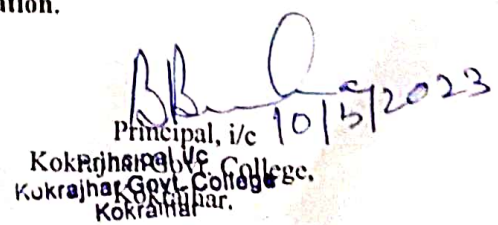 ation.
10/5/2023
Principal, i/c
Kokrajhar Govt. College,
Kokrajhar.
Principal i/c
Kokrajhar Govt. College
Kokrajhar